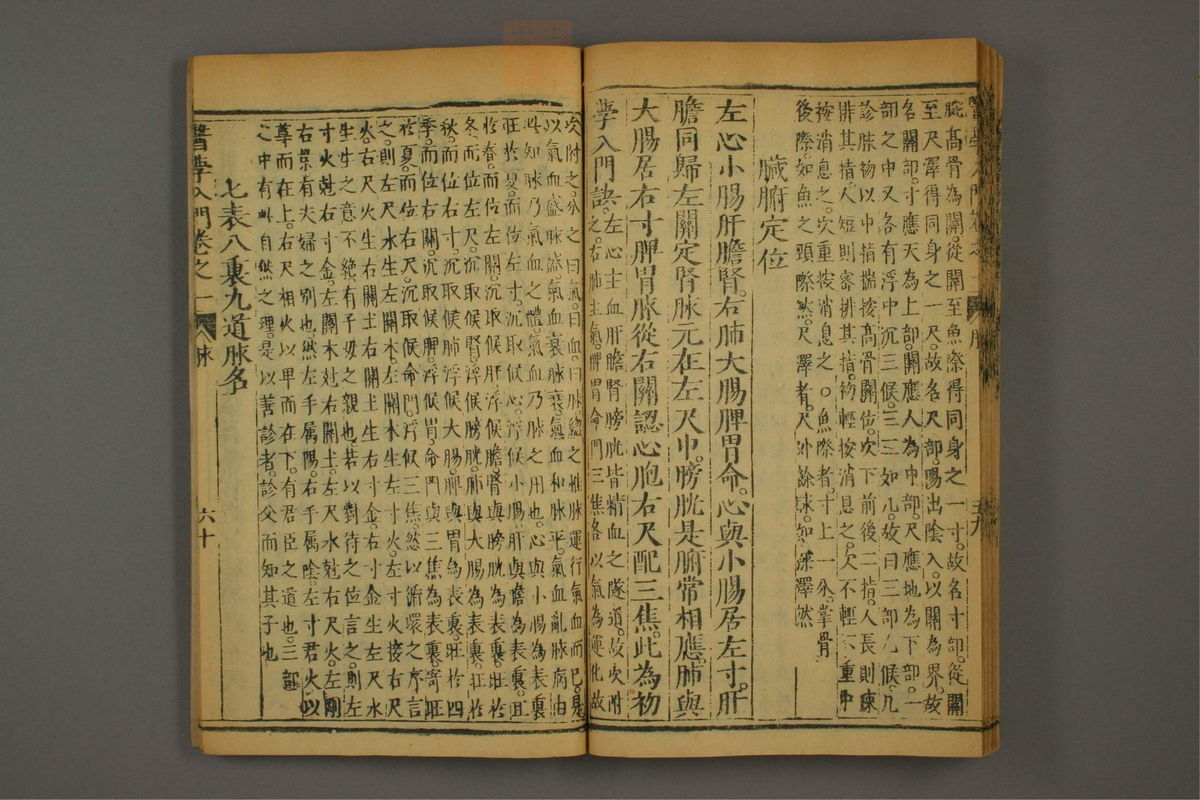 脉髙骨為關從關至魚際得同身之一寸故名寸部從關
至尺澤得同身之一尺故名尺部陽出陰入以關為界故
名關部寸應天為上部關應人為中部尺應地為下部一
部之中又各有浮中沉三候三三如九故曰三部九候凡
診脉初以中指揣按髙骨關位次下前後二指人長則疎
排其指人短則密排其指初輕按消息之次不輕不重中
按消息之次重按消息之○魚際者寸上一分掌骨
後際如魚之頭際然尺澤者尺外餘沬如深澤然
臟腑定位
左心小腸肝膽腎右肺大腸脾胃命心與小腸居左寸肝
膽同歸左關定腎脉元在左尺中膀胱是腑常相應肺與
大腸居右寸脾胃脉從右關認心胞右尺配三焦此為初
學入門訣
左心主血肝膽腎膀胱皆精血之隧道故次附
之右肺主氣脾胃命門三焦各以氣為運化故
次附之分之曰氣曰血曰脉緫之惟脉運行氣血而已是
以氣血盛脉盛氣血衰脉衰氣血和脉平氣血亂脉病由
此知脉乃氣血之體氣血乃脉之用也心與小腸為表裏
旺於夏而位左寸沉取候心浮候小腸肝與膽為表裏旺
於春而位左關沉取候肝浮候膽腎與膀胱為表裏旺於
冬而位左尺沉取候腎浮候膀胱肺與大腸為表裏旺於
秋而位右寸沉取候肺浮候大腸脾與胃為表裏旺於四
季而位右關沉取候脾浮候胃命門與三焦為表裏寄旺
於夏而位右尺沉取候命門浮候三焦然以循環之序言
之則左尺水生左關木左關木生左寸火左寸火接右尺
火右尺火生右關土右關土生右寸金右寸金生左尺水
生生之意不絶有子母之親也若以對待之位言之則左
寸火尅右寸金左關木尅右關土左尺水尅右尺火左剛
右柔有夫婦之别也然左手属陽右手属陰左寸君火以
尊而在上右尺相火以卑而在下有君臣之道也三部
之中有此自然之理是以善診者診父而知其子也
七表八裏九道脉名
醫學入門卷之一
脉
六十